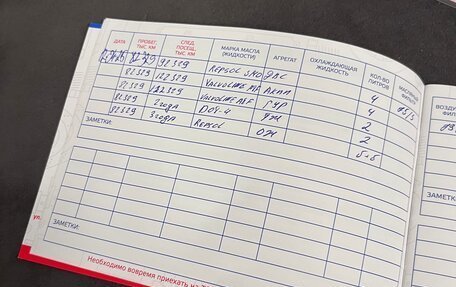 ДАТА ПРОБЕГ ТЫС. КМ СЛЕД. ПОСЕЩ. ТЫС. КМ МАРКА МАСЛА (ЖИДКОСТИ) АГРЕГАТ ОХЛАЖДАЮЩАЯ ЖИДКОСТЬ КОЛ-ВО ЛИТРОВ МАСЛЯНЫЙ ФИЛЬТР
92389 Repsol 5W30 ДВС 4
82389 122389 Valvoline АКПП 4
82389 Valvoline ГУР 2
82389 2 года DOT-4 ТЖ 2
82389 3 года Repsol ОЖ 5.5
ЗАМЕТКИ:
ЗАМЕТКИ:
Необходимо вовремя приехать на
ул.